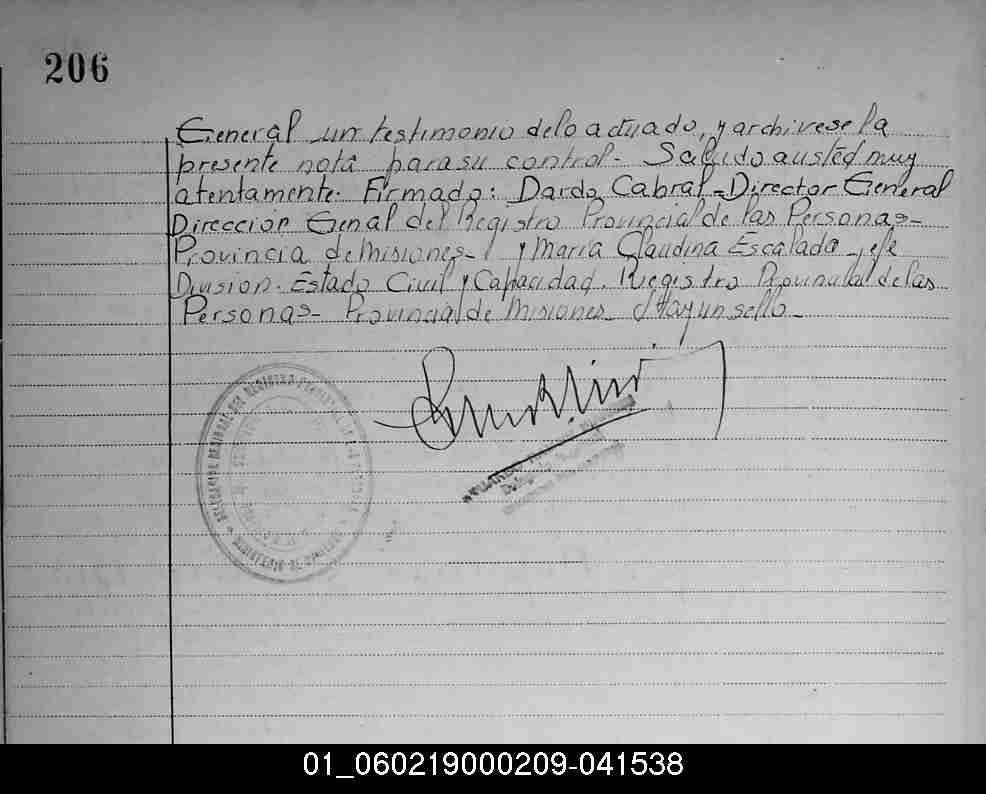 206
General un testimonio delo actuado, y archivese la
presente nota para su control - Saludo a usted muy
atentamente. Firmado: Dardo Cabral - Director General
Dirección Genal del Registro Provincial de las Personas -
Provincia de Misiones - y María Claudina Escalada - jefe
Division. Estado Civil y Capacidad. Registro Provincial de las
Personas - Provincial de Misiones - Hay un sello -
01_060219000209-041538